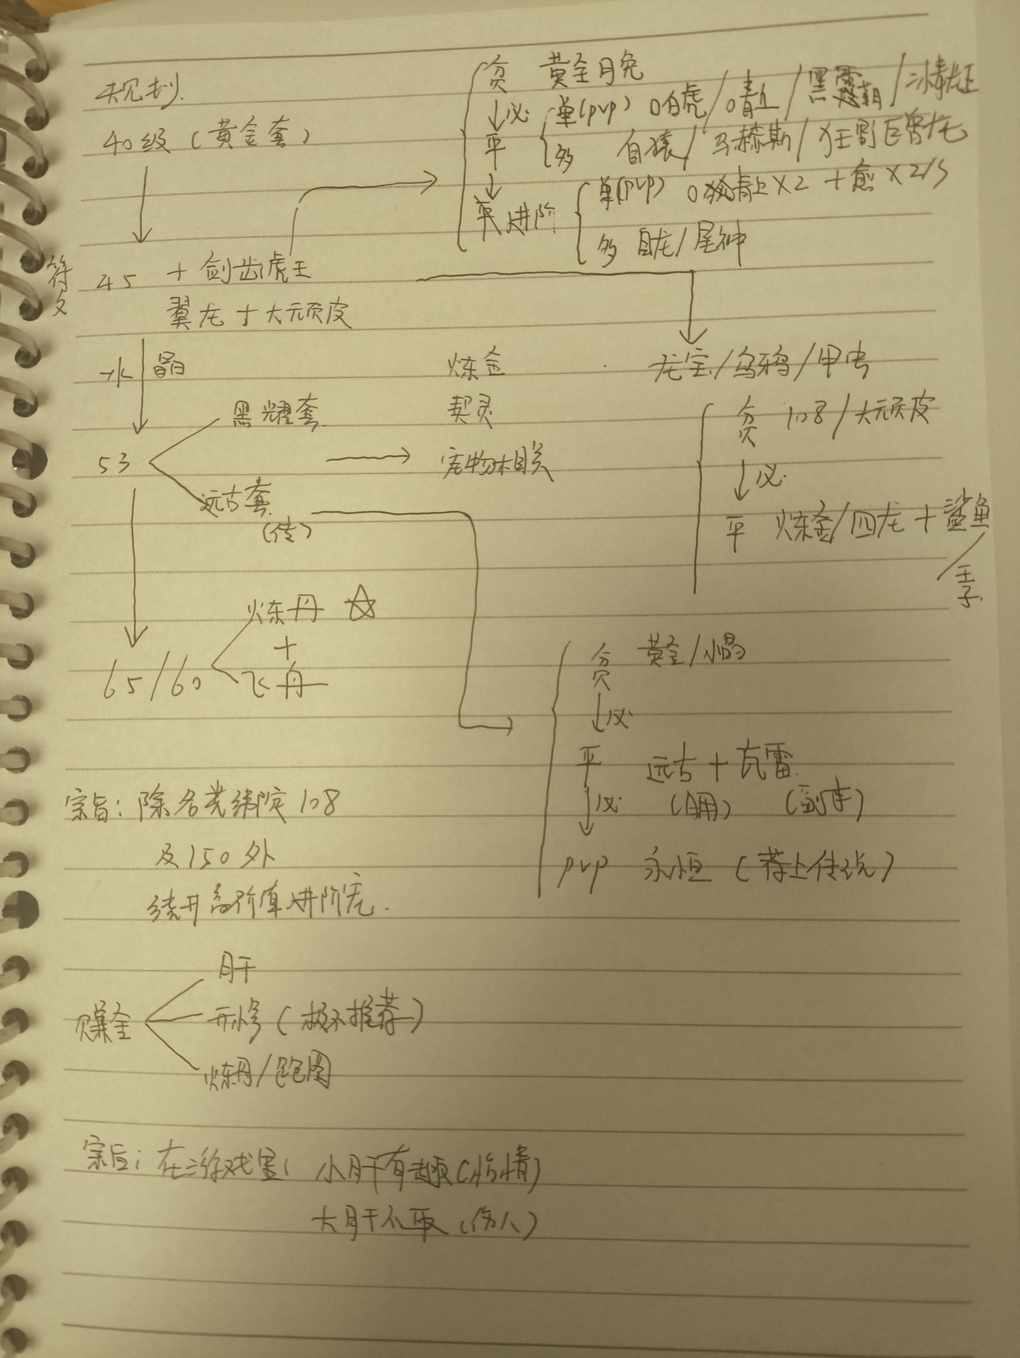 规划
40级（黄金套）
贫 黄金月兔
↓必
平 单(pvp) 白虎/青丘/黑霸/青龙
多 白猿/马赫斯/狂割巨兽龙
↓
平 进阶 单(pvp) 青丘×2+愈×2/3
多 目龙/尾神
符文 45 +剑齿虎王
翼龙+大元顽皮
龙宝/乌鸦/甲虫
水晶
炼金
契灵
宠物相关
53 黑耀套
远古套
(传)
贫 108/大顽皮
↓必
平 炼金/四龙+鲨鱼
/王子
65/60 炼丹☆
+
飞舟
贫 黄金/水晶
↓必
平 远古+瓦雷
(自用) (副本)
↓必
pvp 永恒（荐上传说）
宗旨：除名光绑定108
及150外
绕开高阶真进阶宠.
赚金 肝
开修（极不推荐）
炼丹/跑图
宗旨：在游戏里：小肝有趣(怡情)
大肝不取(伤人)